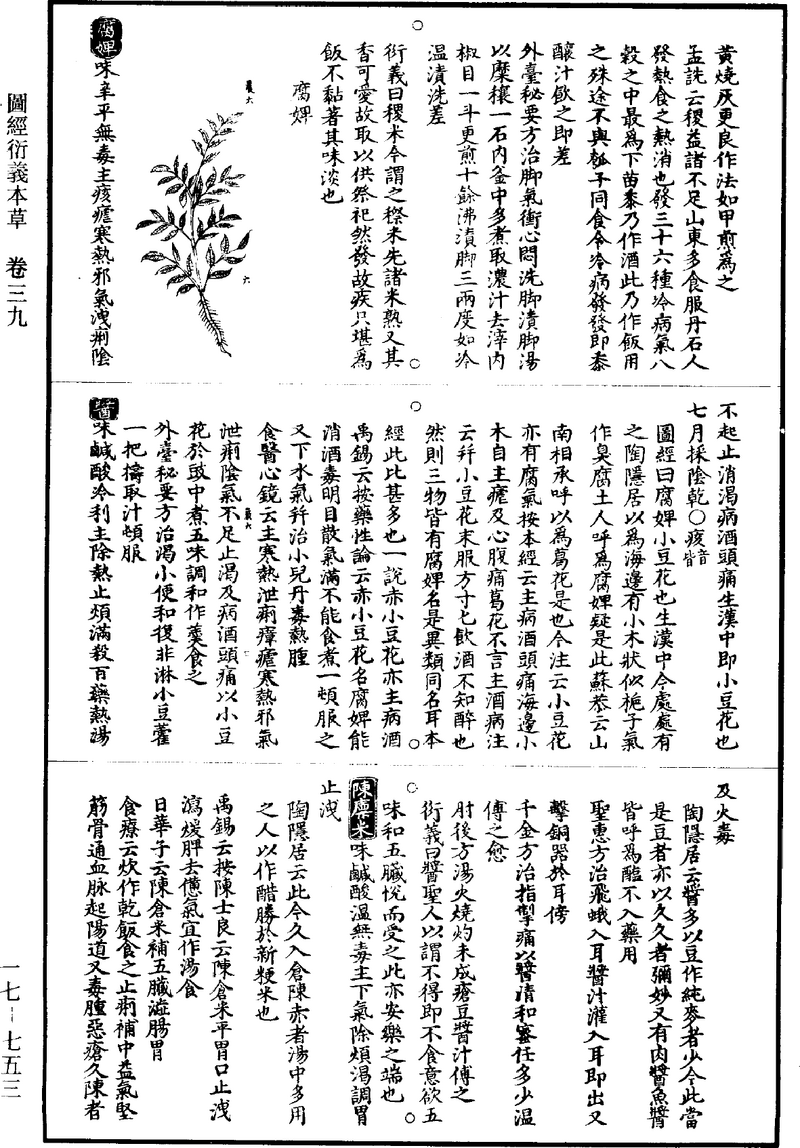 圖經衍義本草　卷三九
一七—七五三
黄燒灰更良作法如甲煎爲之
孟詵云稷益諸不足山東多食服丹石人
發熱食之熱消也發三十六種冷病氣八
穀之中最爲下苗黍乃作酒此乃作飯用
之殊途不與瓠子同食令冷病發發即黍
釀汁飲之即差
外臺秘要方治脚氣衝心悶洗脚漬脚湯
以糜穰一石内釜中多煮取濃汁去滓内
椒目一斗更煎十餘沸漬脚三兩度如冷
温漬洗差
衍義曰稷米今謂之穄米先諸米熟又其
香可愛故取以供祭祀然發故疾只堪爲
飯不黏著其味淡也
腐婢
腐婢味辛平無毒主痎瘧寒熱邪氣洩痢陰
不起止消渴病酒頭痛生漢中即小豆花也
七月採陰乾○痎音皆
圖經曰腐婢小豆花也生漢中今處處有
之陶隱居以爲海邊有小木狀似梔子氣
作臭腐土人呼爲腐婢疑是此蘇恭云山
南相承呼以爲葛花是也今注云小豆花
亦有腐氣按本經云主病酒頭痛海邊小
木自主瘧及心腹痛葛花不言主酒病注
云幷小豆花末服方寸匕飲酒不知醉也
然則三物皆有腐婢名是異類同名耳本
經此比甚多也一說赤小豆花亦主病酒
禹錫云按藥性論云赤小豆花名腐婢能
消酒毒明目散氣滿不能食煮一頓服之
又下水氣幷治小兒丹毒熱腫
食醫心鏡云主寒熱泄痢瘴瘧寒熱邪氣
泄痢陰氣不足止渴及病酒頭痛以小豆
花於豉中煮五味調和作羹食之
外臺秘要方治渴小便和復非淋小豆藿
一把擣取汁頓服
醬味鹹酸冷利主除熱止煩滿殺百藥熱湯
及火毒
陶隱居云醬多以豆作純麥者少今此當
是豆者亦以久久者彌妙又有肉醬魚醬
皆呼爲醢不入藥用
聖惠方治飛蛾入耳醬汁灌入耳即出又
擊銅器於耳傍
千金方治指掣痛以醬清和蜜任多少温
傅之愈
肘後方湯火燒灼未成瘡豆醬汁傅之
衍義曰醬聖人以謂不得即不食意欲五
味和五臟悅而受之此亦安樂之端也
陳廩米味鹹酸溫無毒主下氣除煩渴調胃
止洩
陶隱居云此今久入倉陳赤者湯中多用
之人以作醋勝於新粳米也
禹錫云按陳士良云陳倉米平胃口止洩
瀉煖脾去憊氣宜作湯食
日華子云陳倉米補五臟澁腸胃
食療云炊作乾飯食之止痢補中益氣堅
筋骨通血脉起陽道又毒腫惡瘡久陳者